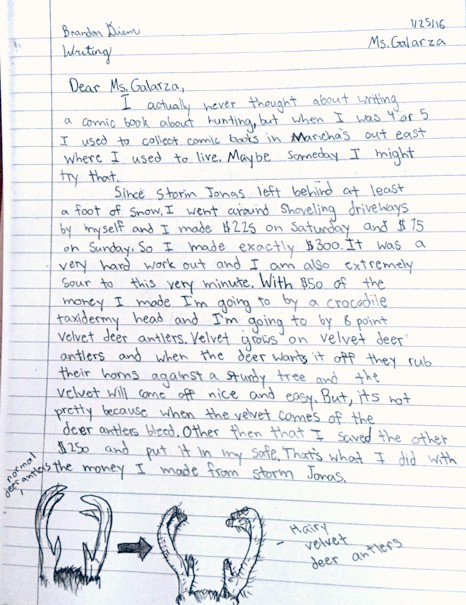 Brandon Diem
1/25/16
Writing
Ms. Galarza
Dear Ms. Galarza,
I actually never thought about writing
a comic book about hunting, but when I was 4 or 5
I used to collect comic books in out east
where I used to live. Maybe someday I might
try that.
Since storm Jonas left behind at least
a foot of snow, I went around shoveling driveways
by myself and I made $225 on Saturday and $75
on Sunday. So I made exactly $300. It was a
very hard work out and I am also extremely
sour to this very minute. With $50 of the
money I made I'm going to by a crocodile
taxidermy head and I'm going to by 8 point
velvet deer antlers. Velvet grows on velvet deer
antlers and when the deer wants it off they rub
their horns against a sturdy tree and the
velvet will come off nice and easy. But, its not
pretty because when the velvet comes of the
deer antlers bleed. Other then that I saved the other
$250 and put it in my safe. That's what I did with
the money I made from storm Jonas.
normal
deer antlers
- Hairy
velvet
deer antlers